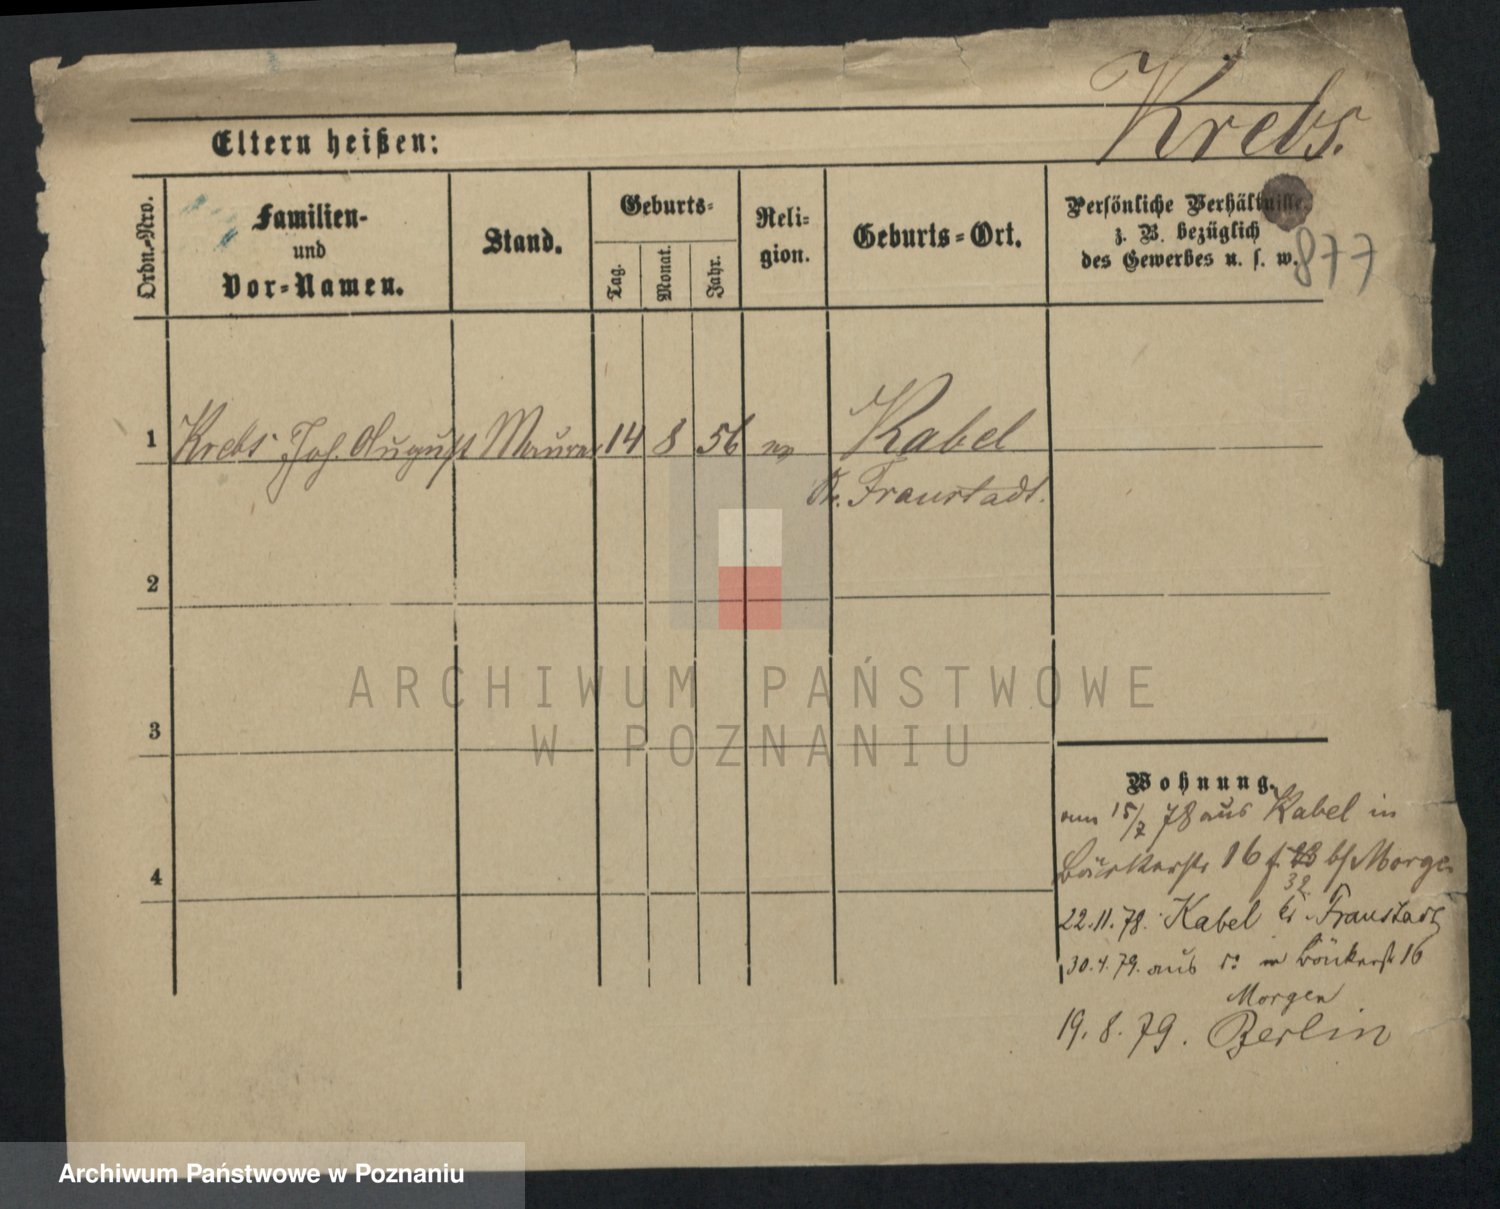 Krebs.
Eltern heißen:
Ordn.-Nro.
Familien-
und
Vor-Namen.
Stand.
Geburts-
Tag.
Monat.
Jahr.
Reli-
gion.
Geburts-Ort.
Persönliche Verhältnisse
z. B. bezüglich
des Gewerbes u. s. w.
877
1 Krebs Joh. August Maurer 14 8 56 Kabel
Kr. Fraustadt.
2
3
4
ARCHIWUM PAŃSTWOWE
W POZNANIU
Wohnung.
am 15/7 78 aus Kabel in
Bäckerstr 16 b/ Morgen
32
22.11.78. Kabel Kr. Fraustadt
30.4.79. aus do in Bäckerstr 16
Morgen
19.8.79. Berlin
Archiwum Państwowe w Poznaniu